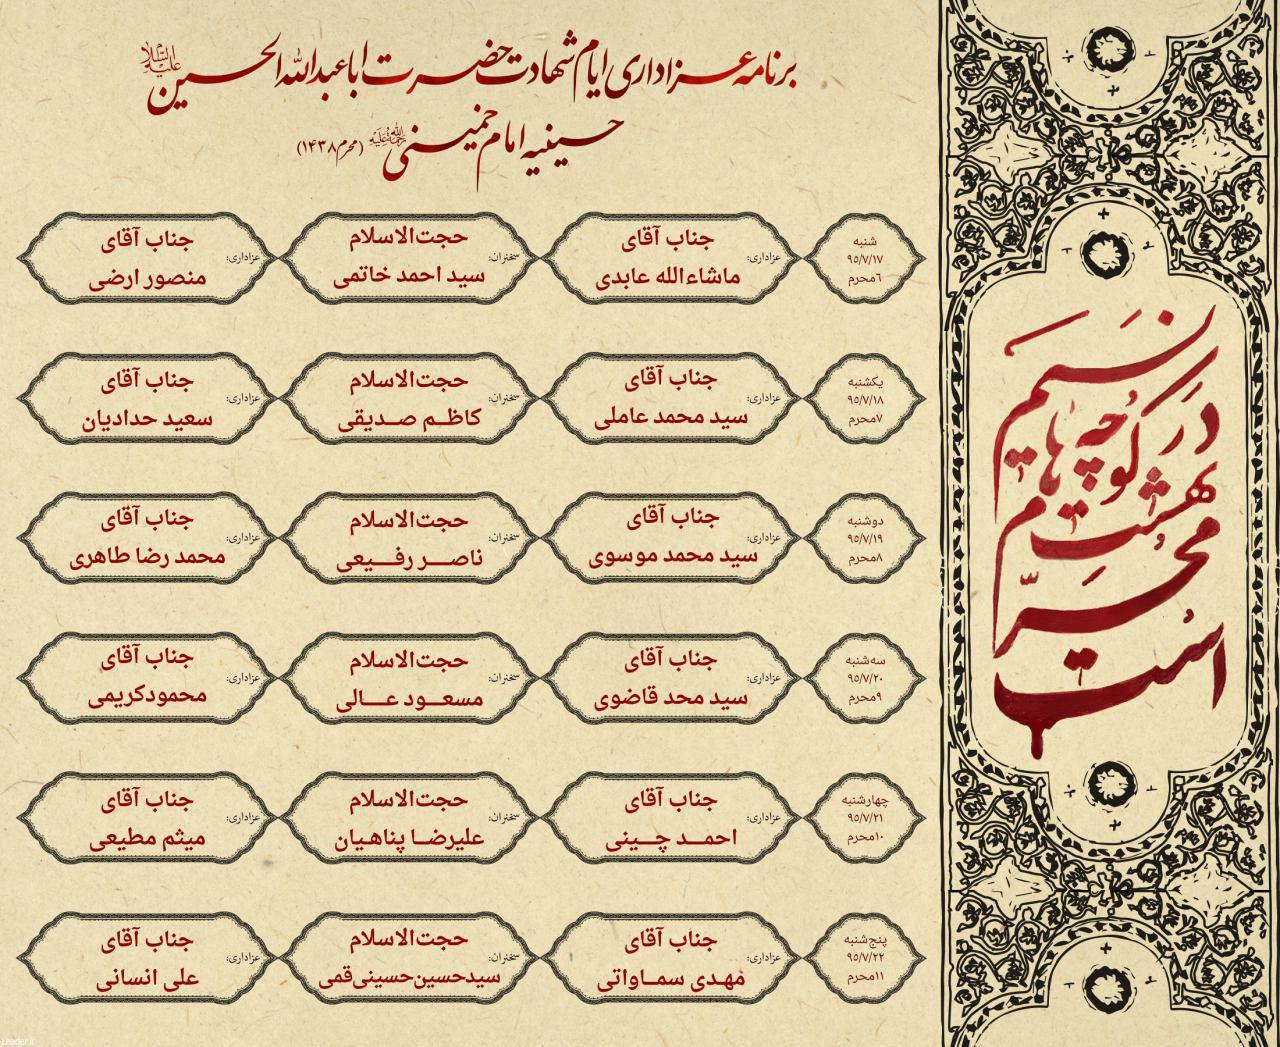 برنامه عزاداری ایام شهادت حضرت اباعبدالله الحسین علیه السلام
حسینیه امام خمینی رحمة الله علیه (محرم ۱۴۳۸)
شنبه
۹۵/۷/۱۷
۶محرم
عزاداری:
جناب آقای
ماشاءالله عابدی
سخنران:
حجت‌الاسلام
سید احمد خاتمی
عزاداری:
جناب آقای
منصور ارضی
یکشنبه
۹۵/۷/۱۸
۷محرم
عزاداری:
جناب آقای
سید محمد عاملی
سخنران:
حجت‌الاسلام
کاظم صدیقی
عزاداری:
جناب آقای
سعید حدادیان
دوشنبه
۹۵/۷/۱۹
۸محرم
عزاداری:
جناب آقای
سید محمد موسوی
سخنران:
حجت‌الاسلام
ناصر رفیعی
عزاداری:
جناب آقای
محمد رضا طاهری
سه‌شنبه
۹۵/۷/۲۰
۹محرم
عزاداری:
جناب آقای
سید محد قاضوی
سخنران:
حجت‌الاسلام
مسعود عالی
عزاداری:
جناب آقای
محمودکریمی
چهارشنبه
۹۵/۷/۲۱
۱۰محرم
عزاداری:
جناب آقای
احمد چینی
سخنران:
حجت‌الاسلام
علیرضا پناهیان
عزاداری:
جناب آقای
میثم مطیعی
پنج‌شنبه
۹۵/۷/۲۲
۱۱محرم
عزاداری:
جناب آقای
مهدی سماواتی
سخنران:
حجت‌الاسلام
سیدحسین‌حسینی‌قمی
عزاداری:
جناب آقای
علی انسانی
نسیم
در کوچه‌های
بهشتم
محرّم
است
Leader.ir